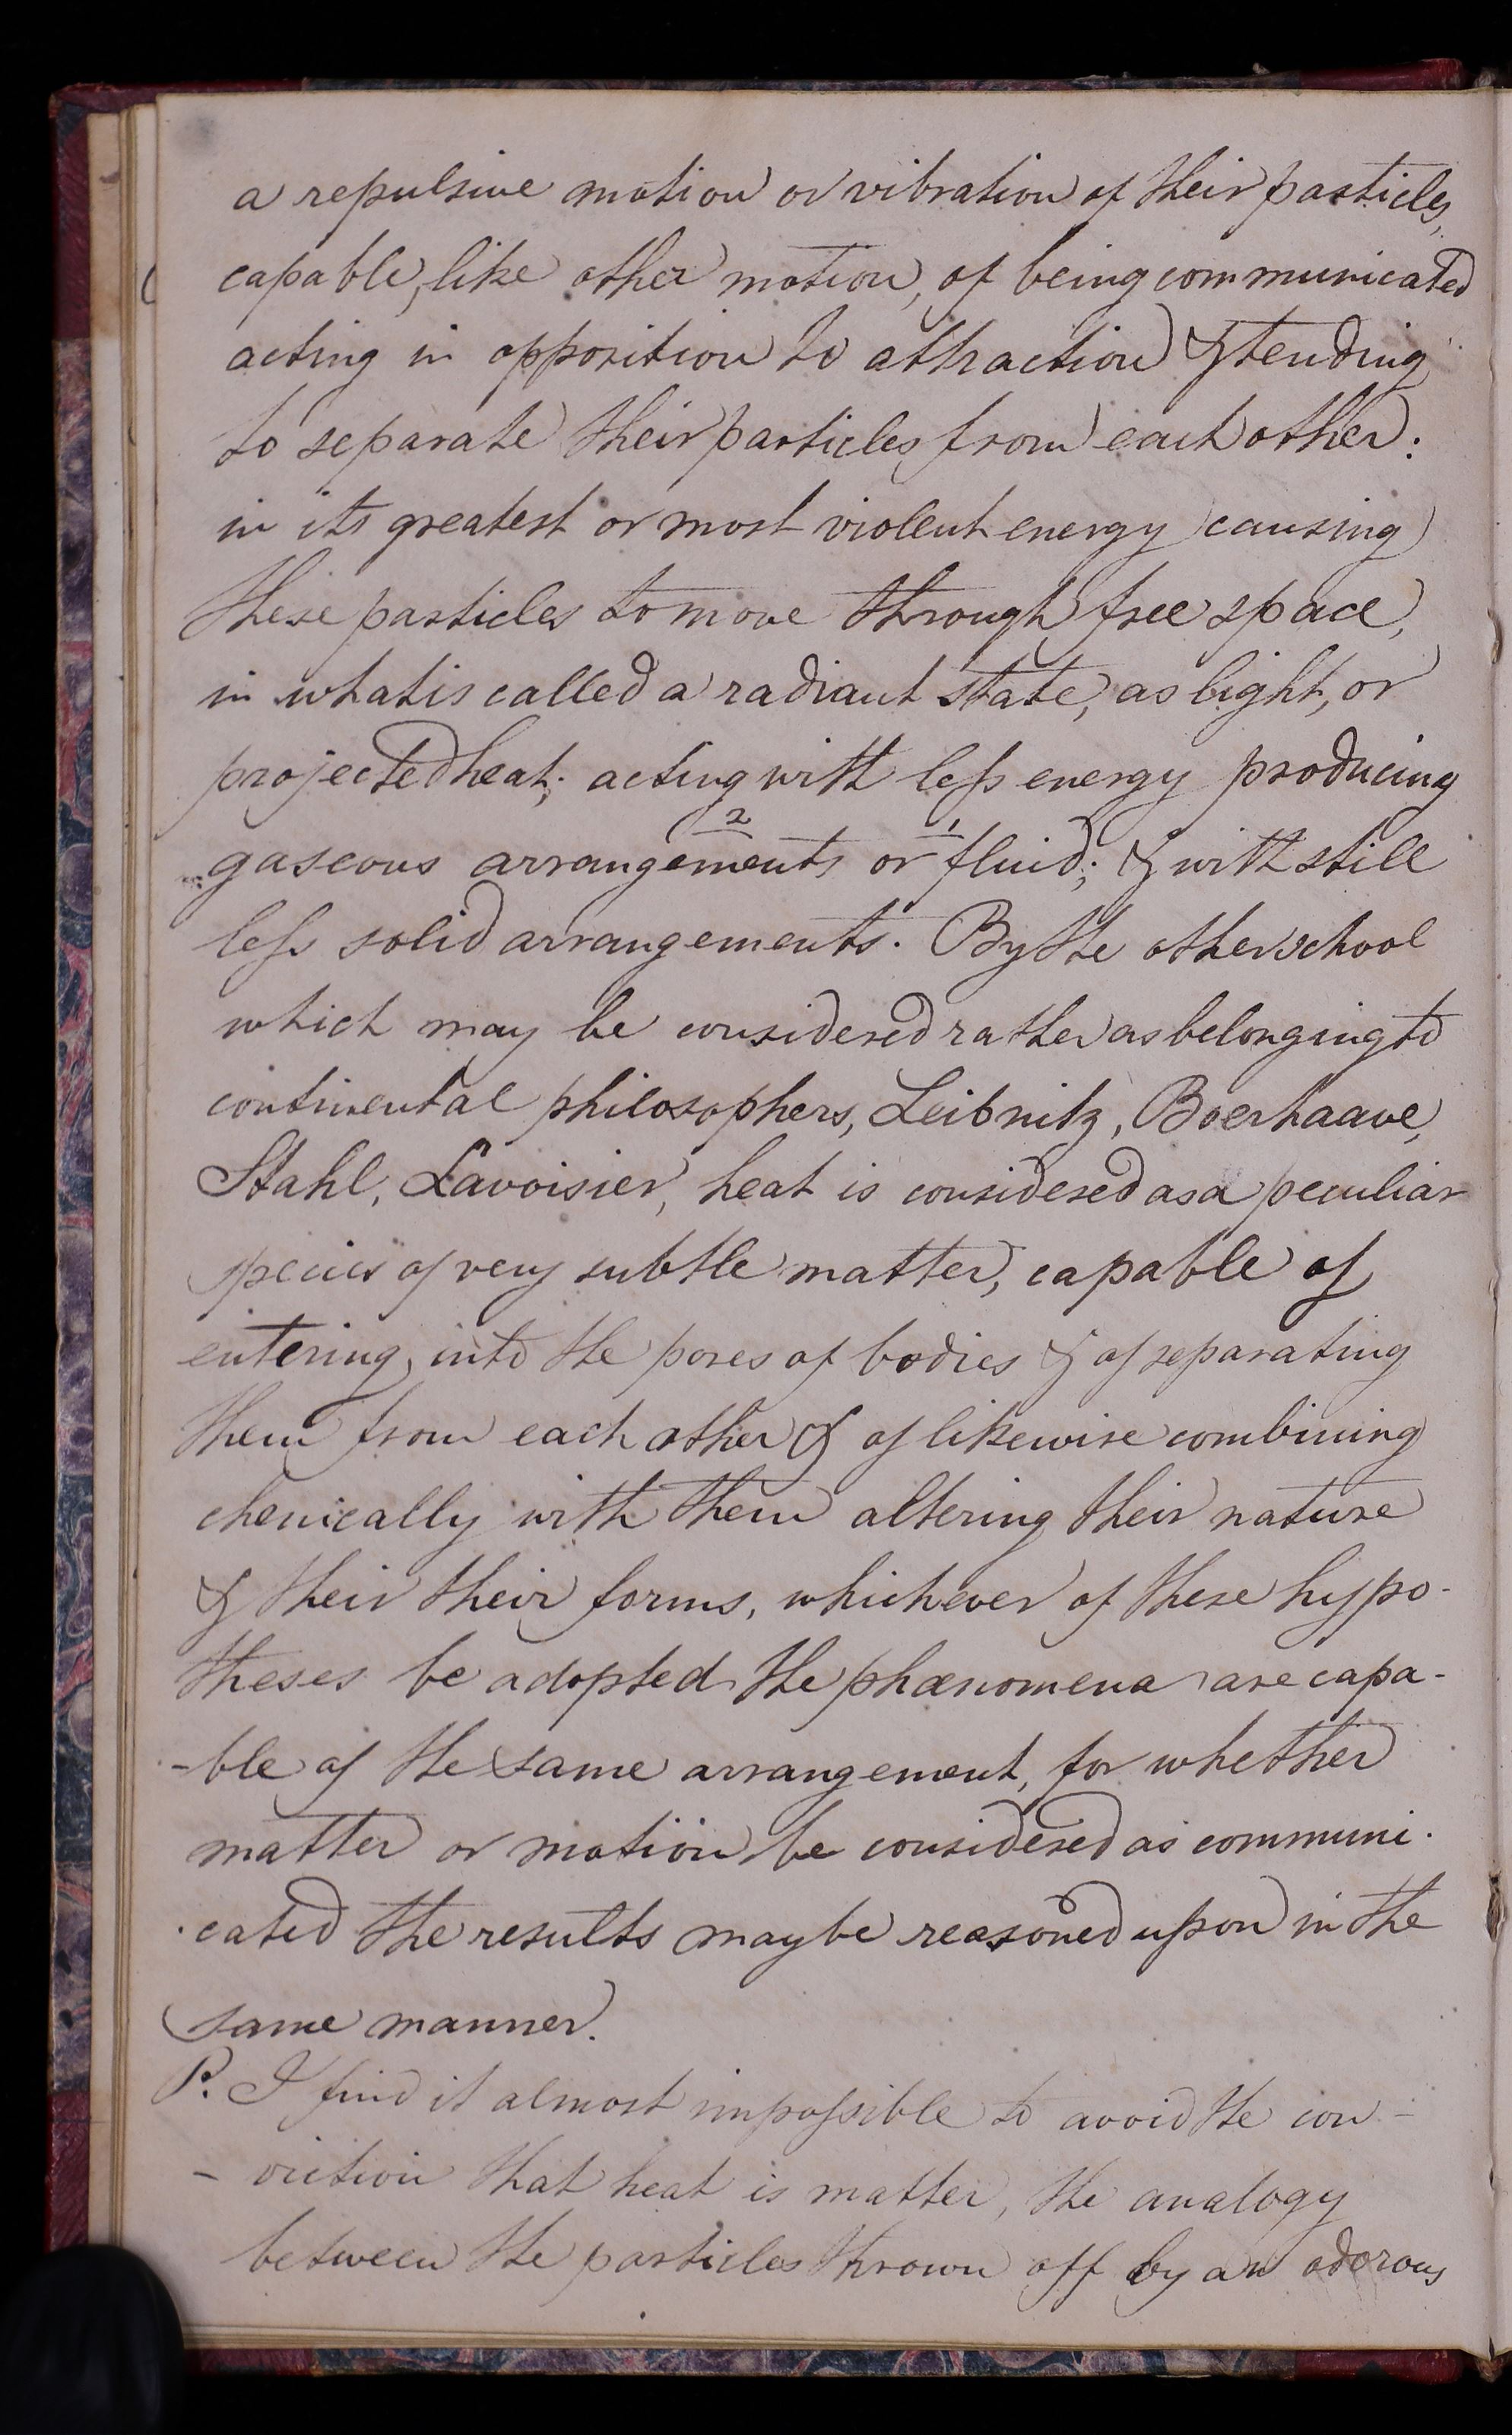 a repulsive motion or vibration of their particles,
capable, like other motion, of being communicated
acting in opposition to attraction & tending
to separate their particles from each other:
in its greatest or most violent energy causing
these particles to move through free space,
in what is called a radiant state, as light, or
projected heat; acting with less energy producing
2 1
gaseous arrangements or fluid; & with still
less solid arrangements. By the other school
which may be considered rather as belonging to
continental philosophers, Leibnitz, Boerhaave,
Stahl, Lavoisier, heat is considered as a peculiar
species of very subtle matter, capable of
entering into the pores of bodies & of separating
them from each other & of likewise combining
chemically with them altering their nature
& their their forms, whichever of these hypo-
theses be adopted the phænomena are capa-
-ble of the same arrangement, for whether
matter or motion be considered as communi-
-cated the results may be reasoned upon in the
same manner.
P. I find it almost impossible to avoid the con-
-viction that heat is matter, the analogy
between the particles thrown off by an odorous